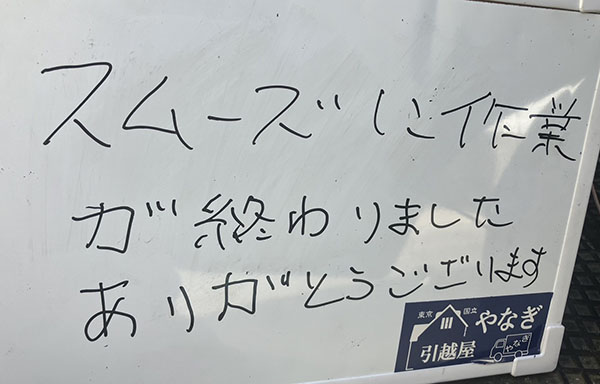 スムーズに作業
が終わりました
ありがとうございます
東京 国立 やなぎ
引越屋 やなぎ